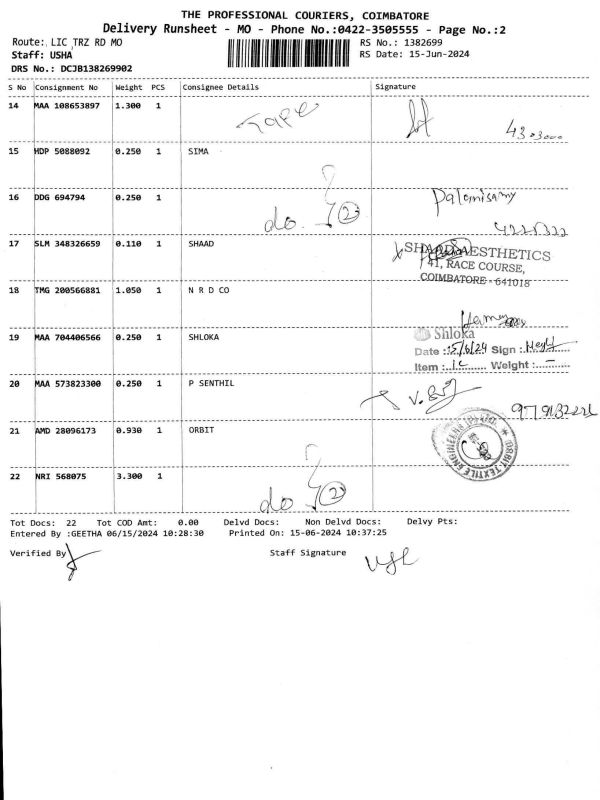 THE PROFESSIONAL COURIERS, COIMBATORE
Delivery Runsheet - MO - Phone No.:0422-3505555 - Page No.:2
Route: LIC TRZ RD MO
RS No.: 1382699
Staff: USHA
RS Date: 15-Jun-2024
DRS No.: DCJB138269902
S No Consignment No Weight PCS Consignee Details Signature
14 MAA 108653897 1.300 1
15 HDP 5088092 0.250 1 SIMA
16 DDG 694794 0.250 1 do. 23 Palanisamy
17 SLM 348326659 0.110 1 SHAAD
SHAAD AESTHETICS
41, RACE COURSE,
COIMBATORE - 641018
18 TMG 200566881 1.050 1 N R D CO
19 MAA 704406566 0.250 1 SHLOKA
Shloka
Date :15/6/24 Sign :
Item : Weight :
20 MAA 573823300 0.250 1 P SENTHIL
21 AMD 28096173 0.930 1 ORBIT
ORBIT TEXTILE ENGINEERS (P) LTD.
22 NRI 568075 3.300 1 do 22
Tot Docs: 22 Tot COD Amt: 0.00 Delvd Docs: Non Delvd Docs: Delvy Pts:
Entered By :GEETHA 06/15/2024 10:28:30 Printed On: 15-06-2024 10:37:25
Verified By Staff Signature